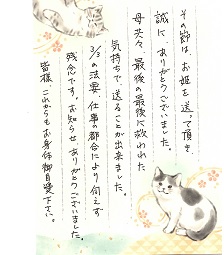 その節は、お姫を送って頂き、
誠にありがとうございました。
母共々、最後の最後に救われた
気持ちで、送ることが出来ました。
3/3の法要、仕事の都合により伺えず
残念です。お知らせありがとうございました。
皆様、これからもお身体御自愛下さい。